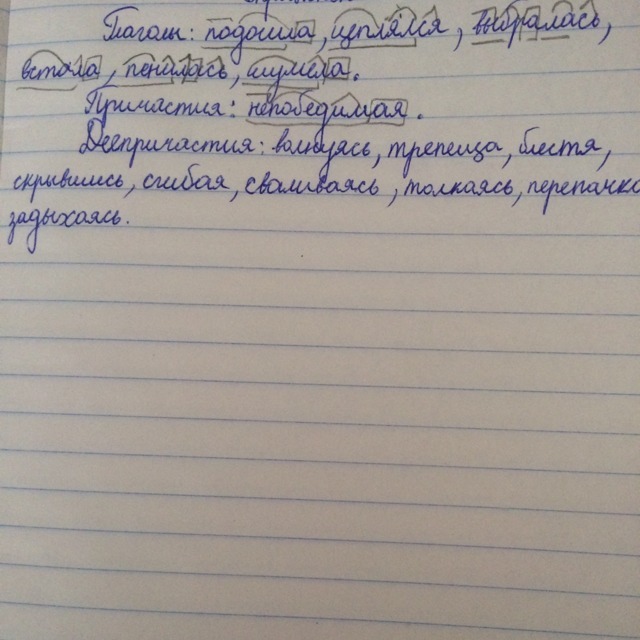 Глаголы: подошла, цеплялся, выбралась,
встала, пенилась, шумела.
Причастия: непобедимая.
Деепричастия: волнуясь, трепеща, блестя,
скрывшись, сгибая, сваливаясь, толкаясь, перепачка
задыхаясь.